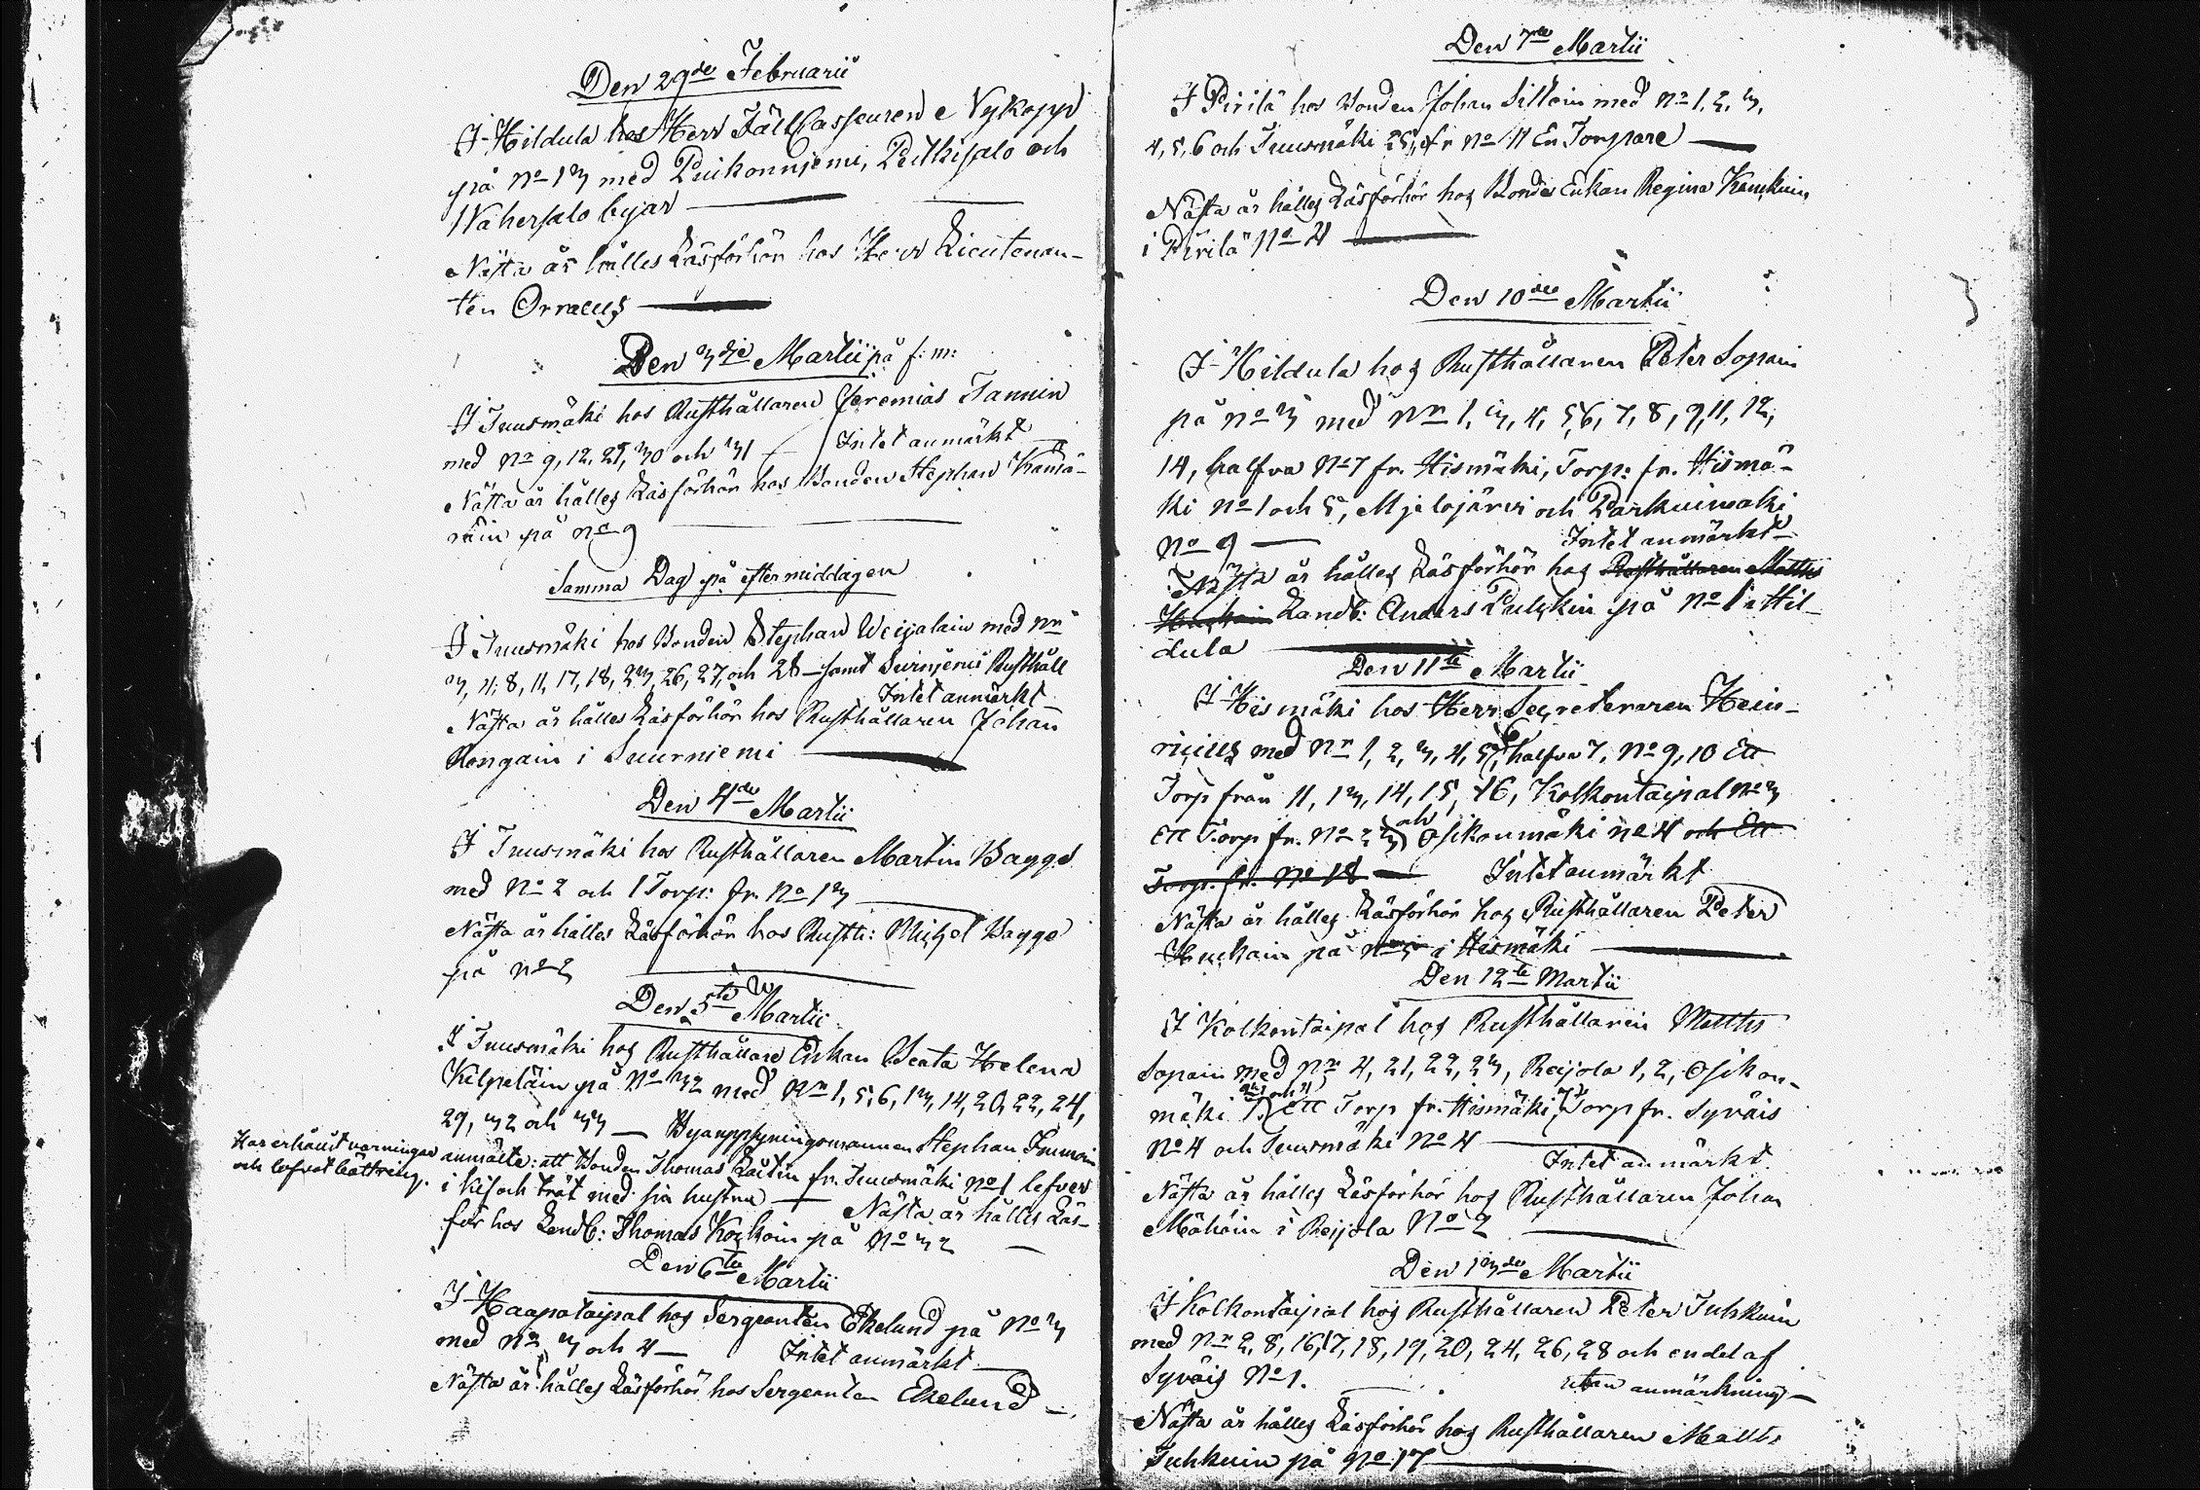 Den 29de Februarii
I Hildula hos Herr Fältkasseuren Nykopp
på No 13 med Puikonniemi, Pitkisalo och
Wahersalo byar
Nästa år hålles Läsförhör hos Herr Lieutenan-
ten Orraeus
Den 3dje Martii på f:m:
I Tuusmäki hos Rusthållaren Jeremias Tannin
med No 9, 12, 25, 30 och 31 Intet anmärkt
Nästa år hålles Läsförhör hos Bonden Stephan
räin på No 9
Samma Dag på eftermiddagen
I Tuusmäki hos Bonden Stephan Weijalain med Nn
3, 4, 8, 11, 17, 18, 23, 26, 27, och 28 samt Suirniemi Rusthåll
Intet anmärkt
Nästa år hålles Läsförhör hos Rusthållaren Johan
Rongain i Suurniemi
Den 4de Martii
I Tuusmäki hos Rusthållaren Martin Bagge
med No 2 och 1 Torp: fr. No 13
Nästa år hålles Läsförhör hos Rusth: Michel Bagge
på No 2
Den 5te Martii
I Tuusmäki hos Rusthållare Enkan Beata Helena
Kilpeläin på No 32 med Nn 1, 5, 6, 13, 14, 20, 22, 24,
29, 32 och 33 Byauppsyningsmannen Stephan Immoin
Har erhållit varningar
och lofvat bättring.
anmälte: att Bonden Thomas Laitin fr. Tuusmäki No 1 lefver
i kif och trät med sin hustru Nästa år hålles Läs-
för hos Landb: Thomas Koskoin på No 32
Den 6te Martii
I Haapataipal hos Sergeanten Ekelund på No 3
med No 3 och 4 Intet anmärkt
Nästa år hålles Läsförhör hos Sergeanten Ekelund
Den 7de Martii
I Pirilä hos Bonden Johan Silloin med No 1, 2, 3,
4, 5, 6 och Tuusmäki 25, fr No 11 En Torpare
Nästa år hålles Läsförhör hos Bonde Enkan Regina
i Pirilä No 4
Den 10de Martii
I Hildula hos Rusthållaren Peter Sopain
på No 3 med Nn 1, 3, 4, 5, 6, 7, 8, 9, 11, 12,
14, halfva No 7 fr. Hismäki, Torp: fr. Hismä-
ki No 1 och 5, Mjelojärvi och Parkuinmäki
No 9 Intet anmärkt
Nästa år hålles Läsförhör hos Rusthållaren Matts
Landb: Anders Pulkin på No 1 i Hil-
dula
Den 11te Martii
I Hismäki hos Herr Secreteraren Hein-
ricius med Nn 1, 2, 3, 4, 5, 6, halfva 7, No 9, 10 Ett
Torp från 11, 13, 14, 15, 16, Kolkontaipal No 3
Ett Torp fr. No 23 och Osikonmäki No 4 och Ett
Torp. fr. No 18 Intet anmärkt
Nästa år hålles Läsförhör hos Rusthållaren Peter
Heiskain på No 5 i Hismäki
Den 12te Martii
I Kolkontaipal hos Rusthållaren Matts
Sopain med Nn 4, 21, 22, 23, Reijola 1, 2, Osikon-
mäki Ett Torp fr. Hismäki, Torp fr. Syväis
No 4 och Tuusmäki No 4
Intet anmärkt
Nästa år hålles Läsförhör hos Rusthållaren Johan
Mähöin i Reijola No 2
Den 13de Martii
I Kolkontaipal hos Rusthållaren Peter Tuhkuin
med Nn 2, 8, 16, 17, 18, 19, 20, 24, 26, 28 och en del af
Syväis No 1. utan anmärkning
Nästa år hålles Läsförhör hos Rusthållaren Matts
Tuhkuin på No 17